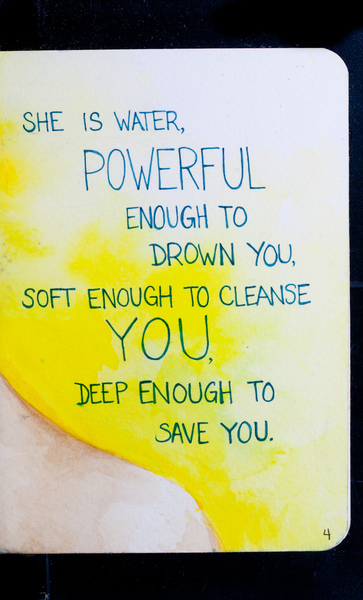 SHE IS WATER,
POWERFUL
ENOUGH TO
DROWN YOU,
SOFT ENOUGH TO CLEANSE
YOU,
DEEP ENOUGH TO
SAVE YOU.
4